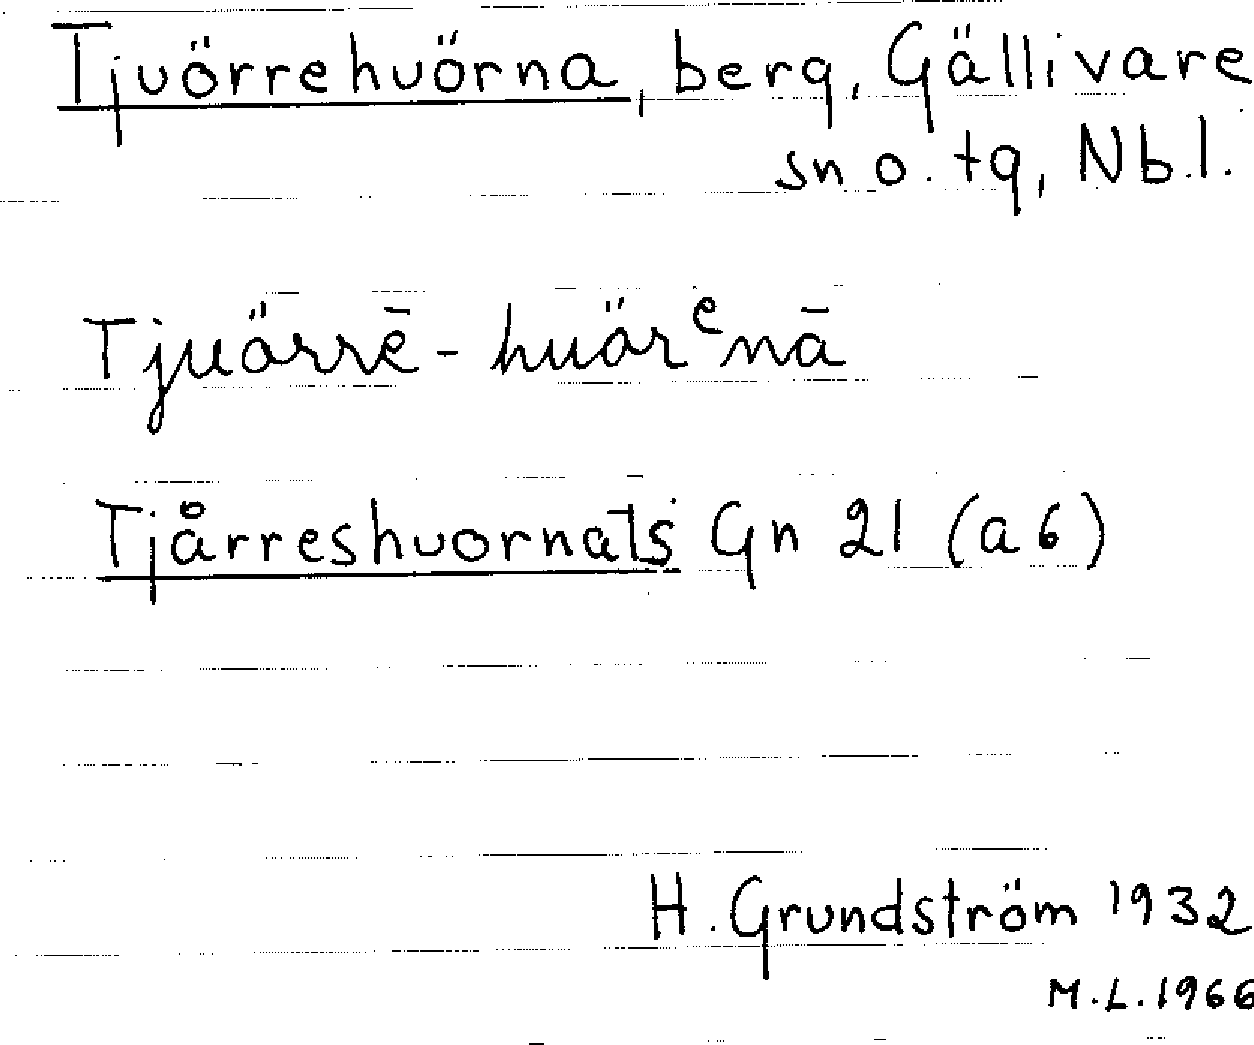 Tjuörrehuörna, berg, Gällivare
sn o. tg, Nb.l.
Tjuörrē - huörᵉnā
Tjårreshuornats Gn 21 (a6)
H. Grundström 1932
M.L. 1966